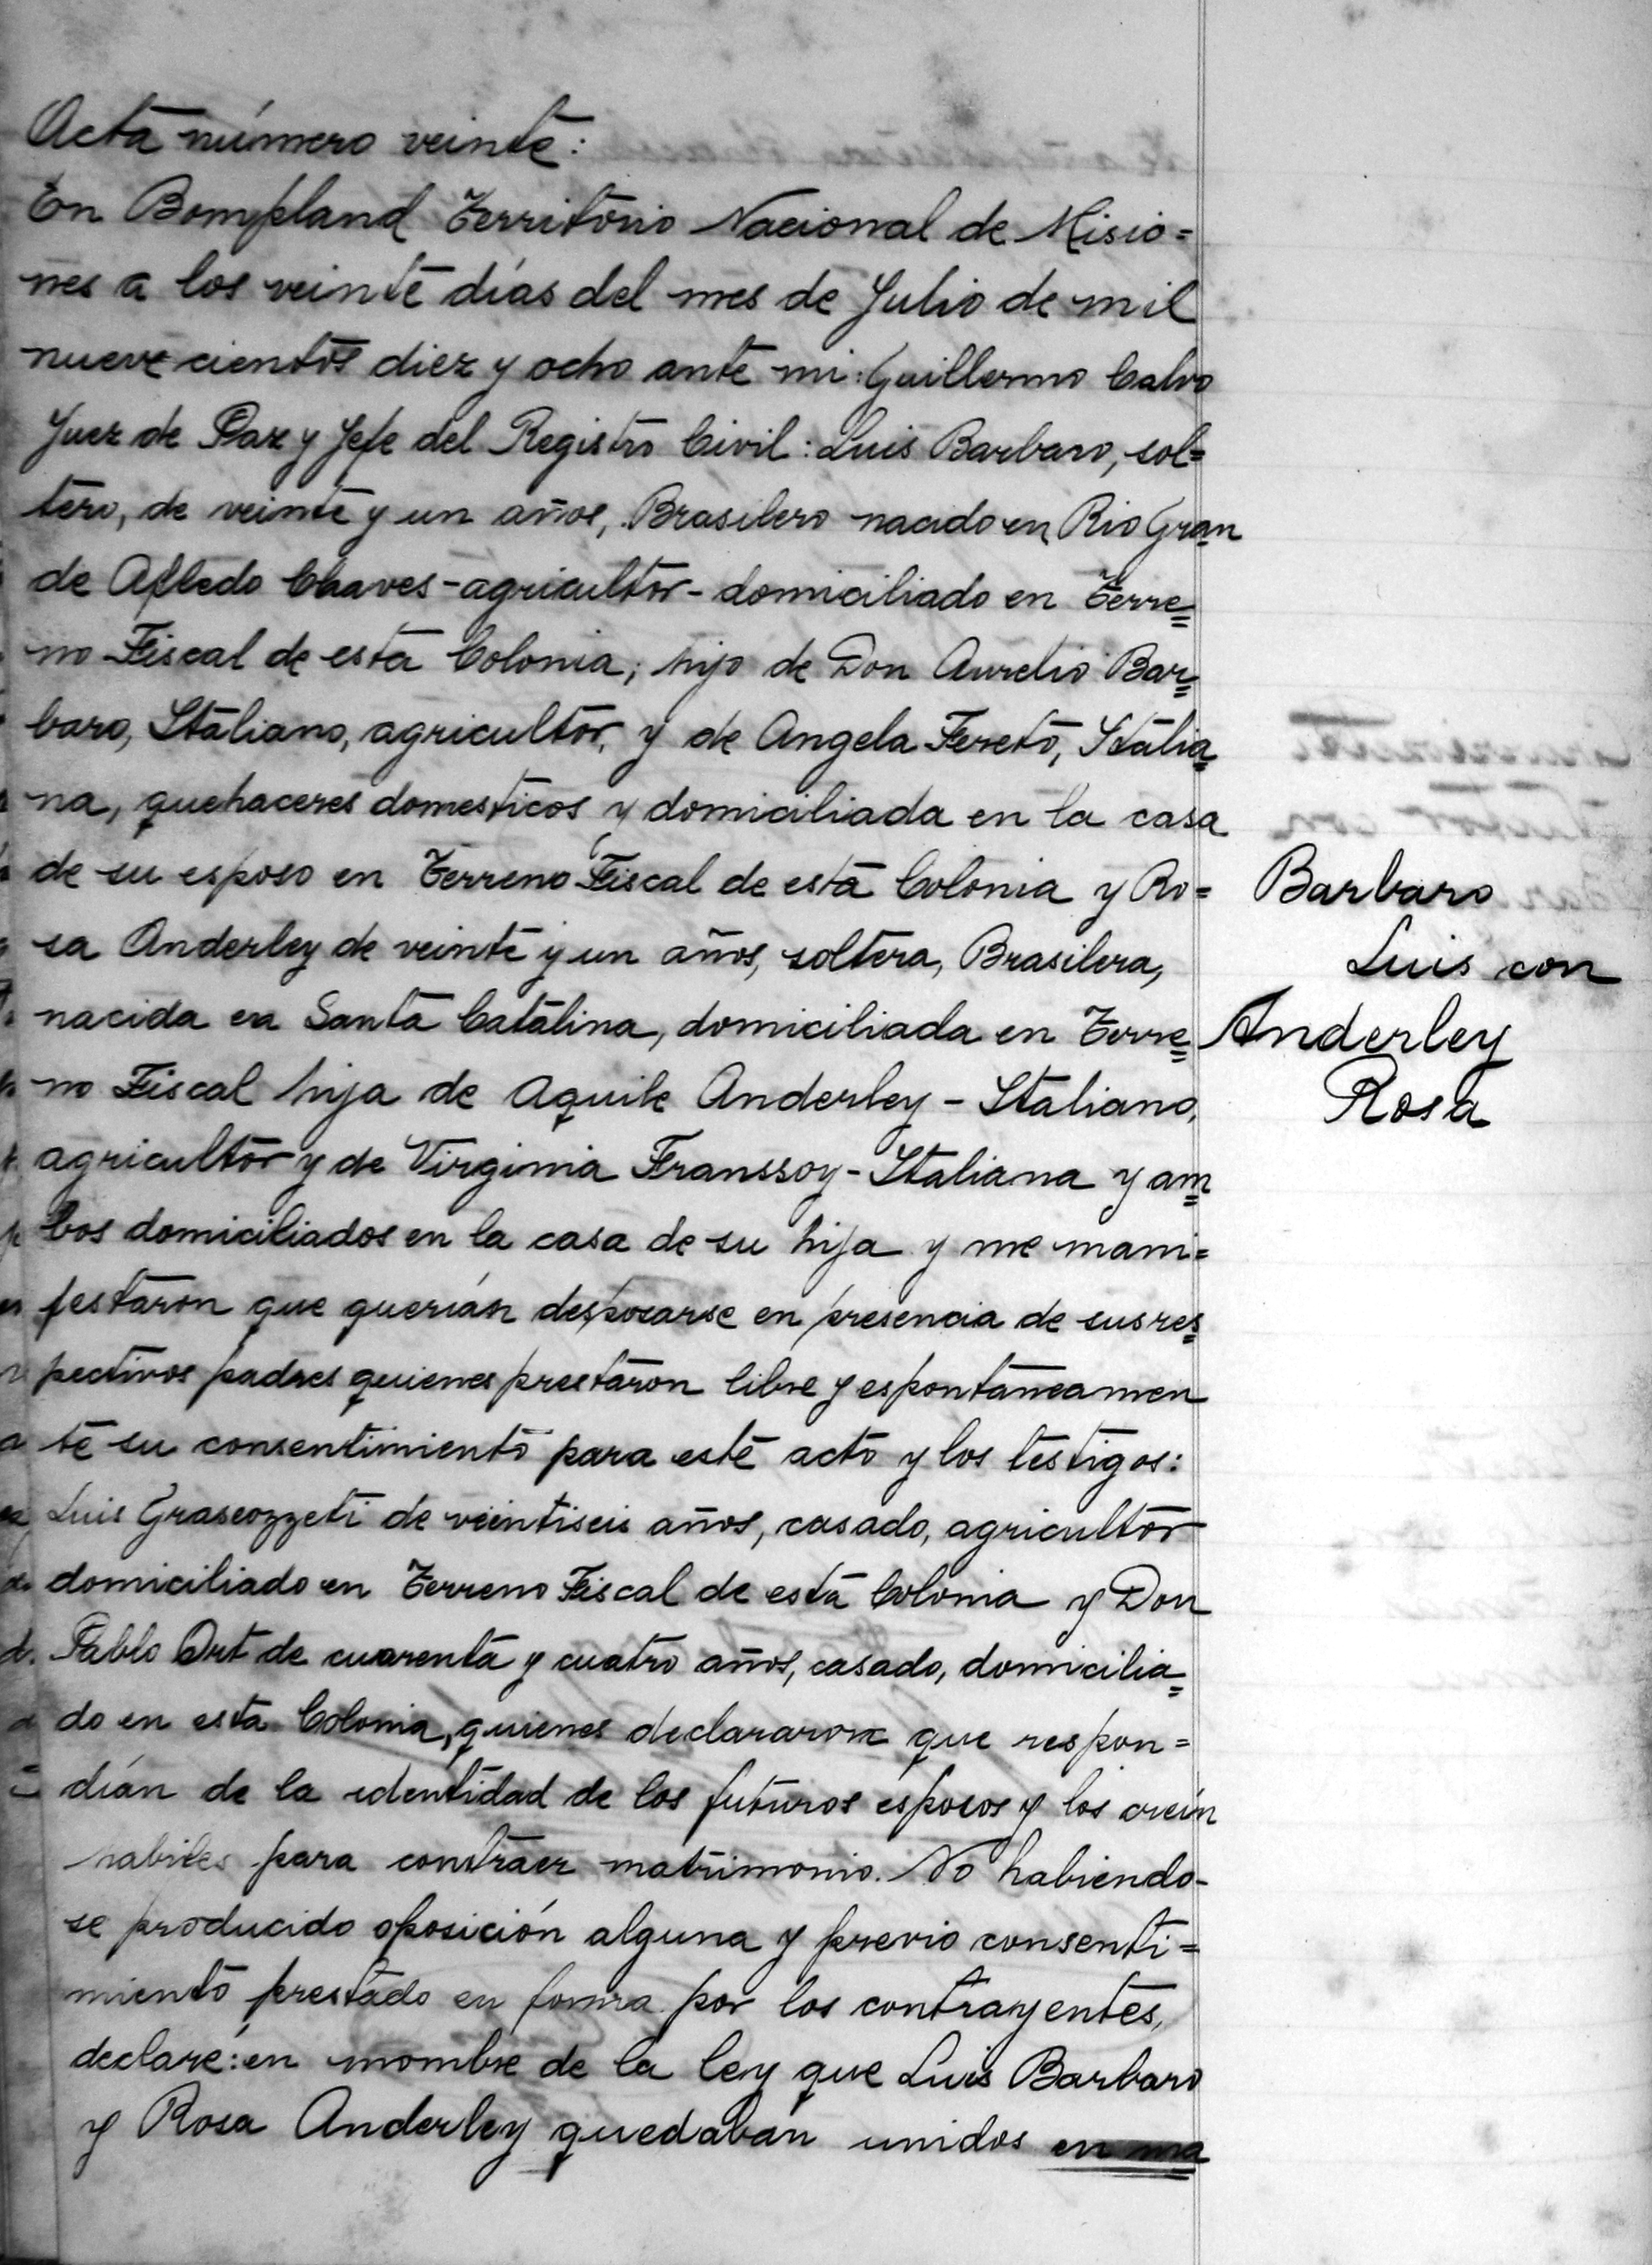 Acta número veinte:
En Bompland Territorio Nacional de Misio=
nes a los veinte días del mes de Julio de mil
nueve cientos diez y ocho ante mi: Guillermo Calvo
Juez de Paz y Jefe del Registro Civil: Luis Barbaro, sol=
tero, de veinte y un años, Brasilero nacido en Rio Gran
de Alfledo Chaves - agricultor - domiciliado en Terre=
no Fiscal de esta Colonia; hijo de Don Aurelio Bar=
baro, Italiano, agricultor, y de Angela Fereto, Italia=
na, quehaceres domesticos y domiciliada en la casa
de su esposo en Terreno Fiscal de esta Colonia y Ro=
sa Anderley de veinte y un años, soltera, Brasilera,
nacida en Santa Catalina, domiciliada en Terre=
no Fiscal hija de Aquile Anderley - Italiano,
agricultor y de Virginia Franssoy - Italiana y am=
bos domiciliados en la casa de su hija y me mani=
festaron que querían desposarse en presencia de sus res=
pectivos padres quienes prestaron libre y espontaneamen
te su consentimiento para este acto y los testigos:
Luis Grascozzeti de veintiseis años, casado, agricultor
domiciliado en Terreno Fiscal de esta Colonia y Don
Pablo Ort de cuarenta y cuatro años, casado, domicilia=
do en esta Colonia, quienes declararon que respon=
dían de la identidad de los futuros esposos y los creín
habiles para contraer matrimonio. No habiendo-
se producido oposición alguna y previo consenti=
miento prestado en forma por los contrayentes,
declaré: en nombre de la ley que Luis Barbaro
y Rosa Anderley quedaban unidos en ma=
Barbaro
Luis con
Anderley
Rosa